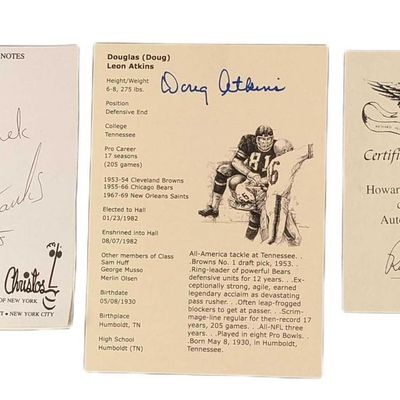 NOTES
Christos
OF NEW YORK
NEW YORK CITY
Douglas (Doug)
Leon Atkins
Doug Atkins
Height/Weight
6-8, 275 lbs.
Position
Defensive End
College
Tennessee
Pro Career
17 seasons
(205 games)
1953-54 Cleveland Browns
1955-66 Chicago Bears
1967-69 New Orleans Saints
Elected to Hall
01/23/1982
Enshrined into Hall
08/07/1982
Other members of Class
Sam Huff
George Musso
Merlin Olsen
Birthdate
05/08/1930
Birthplace
Humboldt, TN
High School
Humboldt (TN)
81
All-America tackle at Tennessee.
. .Browns No. 1 draft pick, 1953. .
. .Ring-leader of powerful Bears
defensive units for 12 years. . .Ex-
ceptionally strong, agile, earned
legendary acclaim as devastating
pass rusher. . .Often leap-frogged
blockers to get at passer. . .Scrim-
mage-line regular for then-record 17
years, 205 games. . .All-NFL three
years. . .Played in eight Pro Bowls. .
. .Born May 8, 1930, in Humboldt,
Tennessee.
Certific
Howar
Auto